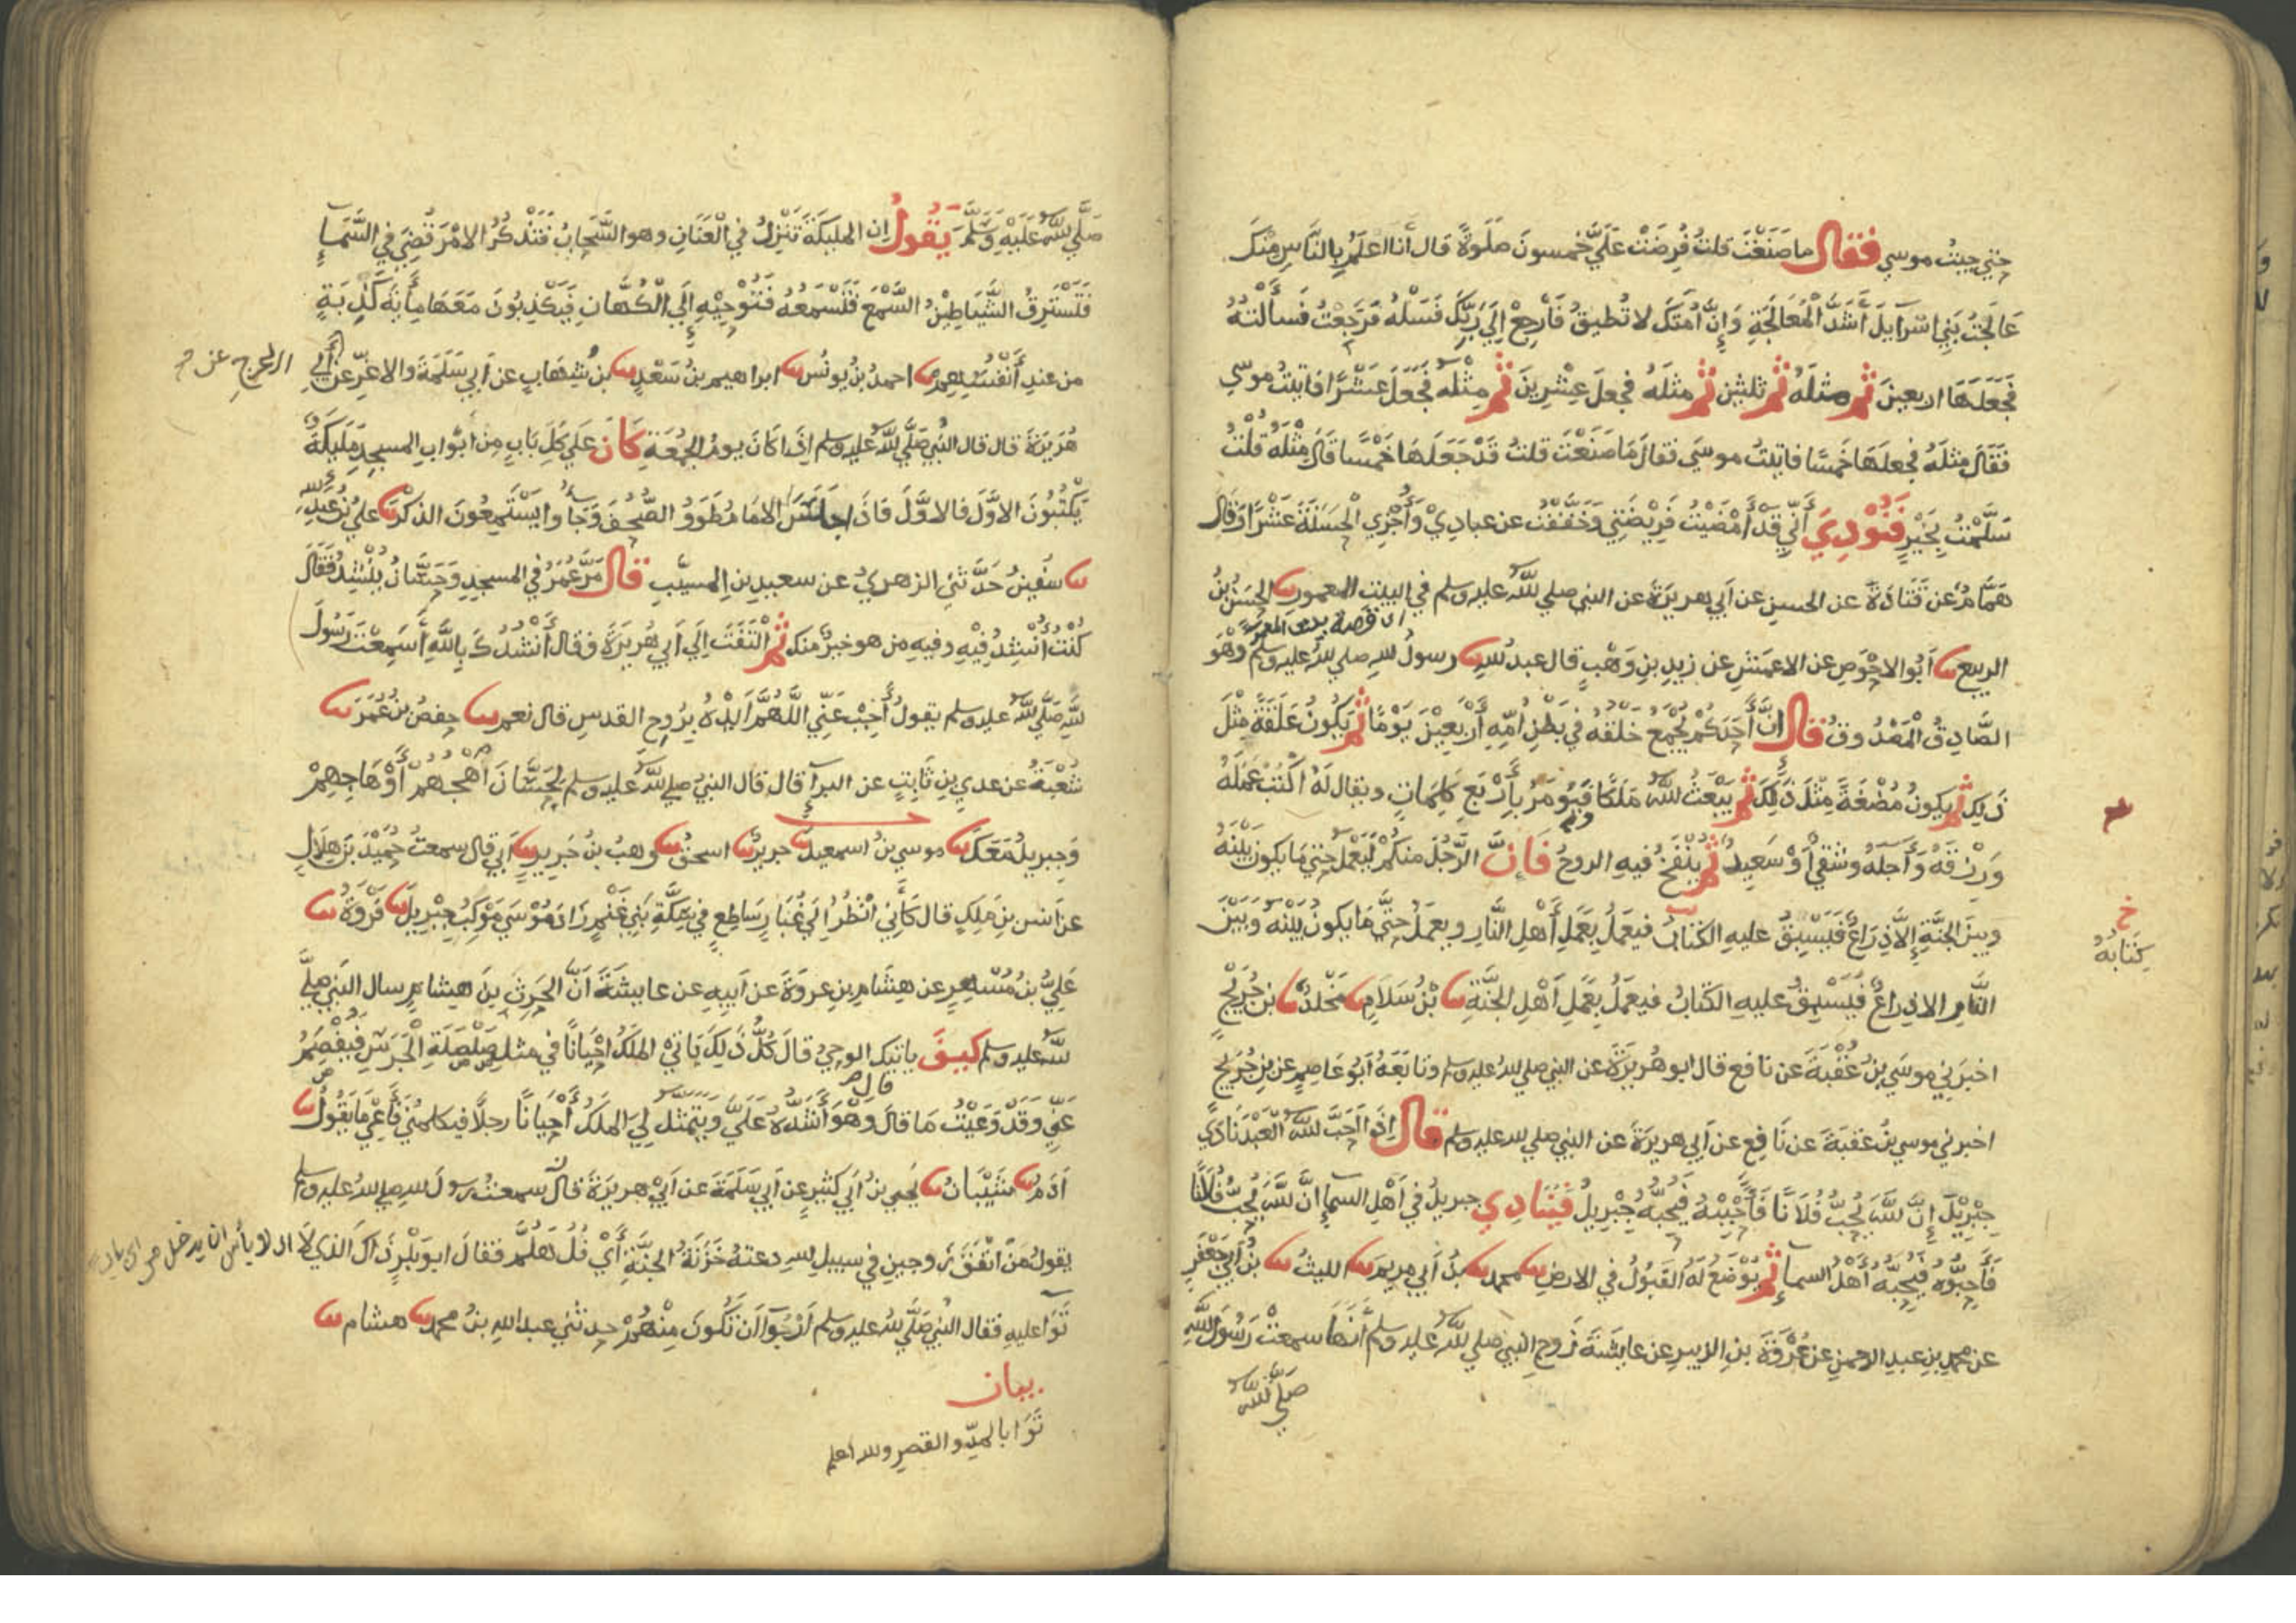 حتي جيت موسي فقال ما صنعت قلت فرضت علي خمسون صلوة قال أنا اعلم بالناس منك
عالجت بني اسرايل أشد المعالجة وإن أمتك لا تطيق فارجع إلي ربك فسله فرجعت فسألته
فجعلها اربعين ثم مثله ثم ثلثين ثم مثله فجعل عشرين ثم مثله فجعل عشرا فاتيت موسي
فقال مثله فجعلها خمسا فاتيت موسي فقال ما صنعت قلت قد جعلها خمسا قال مثله قلت
سلمت بخير فنودي أني قد أمضيت فريضتي وخففت عن عبادي وأجزي الحسنة عشرا وقال
همام عن قتادة عن الحسن عن أبي هريرة عن النبي صلي الله عليه وسلم في البيت المعمور الحسن بن
الربيع أبو الاحوص عن الاعمش عن زيد بن وهب قال عبد الله رسول الله صلي الله عليه وسلم وهو
الصادق المصدوق قال ان أحدكم يجمع خلقه في بطن امه أربعين يوما ثم يكون علقة مثل
ذلك ثم يكون مضغة مثل ذلك ثم يبعث الله ملكا فيؤمر بأربع كلمات ويقال له اكتب عمله
ورزقه وأجله وشقي أو سعيد ثم ينفخ فيه الروح فإن الرجل منكم ليعمل حتي ما يكون بينه
وبين الجنة إلا ذراع فيسبق عليه الكتاب فيعمل بعمل أهل النار ويعمل حتي ما يكون بينه وبين
النار الا ذراع فيسبق عليه الكتاب فيعمل بعمل أهل الجنة بن سلام مخلد بن جريج
اخبرني موسي بن عقبة عن نافع قال ابو هريرة عن النبي صلي الله عليه وسلم وتابعه أبو عاصم عن بن جريج
اخبرني موسي بن عقبة عن نافع عن أبي هريرة عن النبي صلي الله عليه وسلم قال إذا أحب الله العبد نادي
جبريل إن الله يحب فلانا فأحببه فيحبه جبريل فينادي جبريل في أهل السما إن الله يحب فلانا
فأحبوه فيحبه أهل السما ثم يوضع له القبول في الارض محمد بن أبي مريم الليث بن أبي جعفر
عن محمد بن عبد الرحمن عن عروة بن الزبير عن عايشة زوج النبي صلي الله عليه وسلم أنها سمعت رسول الله
صلي الله
خ
كتابه
صلي الله عليه وسلم يقول إن المليكة تنزل في العنان وهو السحاب فتذكر الامر قضي في السما
فتسترق الشياطين السمع فتسمعه فتوحيه إلي الكهان فيكذبون معها مأية كذبة
من عند أنفسهم احمد بن يونس ابراهيم بن سعد بن شهاب عن أبي سلمة والاغر عن أبي
هريرة قال قال النبي صلي الله عليه وسلم إذا كان يوم الجمعة كان علي كل باب من ابواب المسجد مليكة
يكتبون الاول فالاول فاذا جلس الامام طووا الصحف وجاوا يستمعون الذكر علي بن عبد الله
سفين حدثني الزهري عن سعيد بن المسيب قال مر عمر في المسجد وحسان ينشد فقال
كنت أنشد فيه وفيه من هو خير منك ثم التفت إلي أبي هريرة فقال أنشدك بالله أسمعت رسول
الله صلي الله عليه وسلم يقول أجب عني اللهم ايده بروح القدس قال نعم حفص بن عمر
شعبة عن عدي بن ثابت عن البرآ قال قال النبي صلي الله عليه وسلم لحسان أهجهم أو هاجهم
وجبريل معك موسي بن اسمعيل جرير اسحق وهب بن جرير أبي قال سمعت حميد بن هلال
عن انس بن ملك قال كأني انظر إلي غبار ساطع في سكة بني غنم زاد موسي موكب جبريل فروة
علي بن مسهر عن هشام بن عروة عن أبيه عن عايشة أن الحرث بن هشام سال النبي صلي
الله عليه وسلم كيف ياتيك الوحي قال كل ذلك ياتي الملك احيانا في مثل صلصلة الجرس فيفصم
عني وقد وعيت ما قال وهو أشده علي ويتمثل لي الملك أحيانا رجلا فيكلمني فأعي ما يقول
آدم شيبان يحيي بن أبي كثير عن أبي سلمة عن أبي هريرة قال سمعت رسول الله صلي الله عليه وسلم
يقول من انفق زوجين في سبيل الله دعته خزنة الجنة أي فل هلم فقال ابو بكر ذاك الذي لا
توا عليه فقال النبي صلي الله عليه وسلم أرجوا أن تكون منهم حدثني عبد الله بن محمد هشام
بيان
توا بالمد والقصر والله اعلم